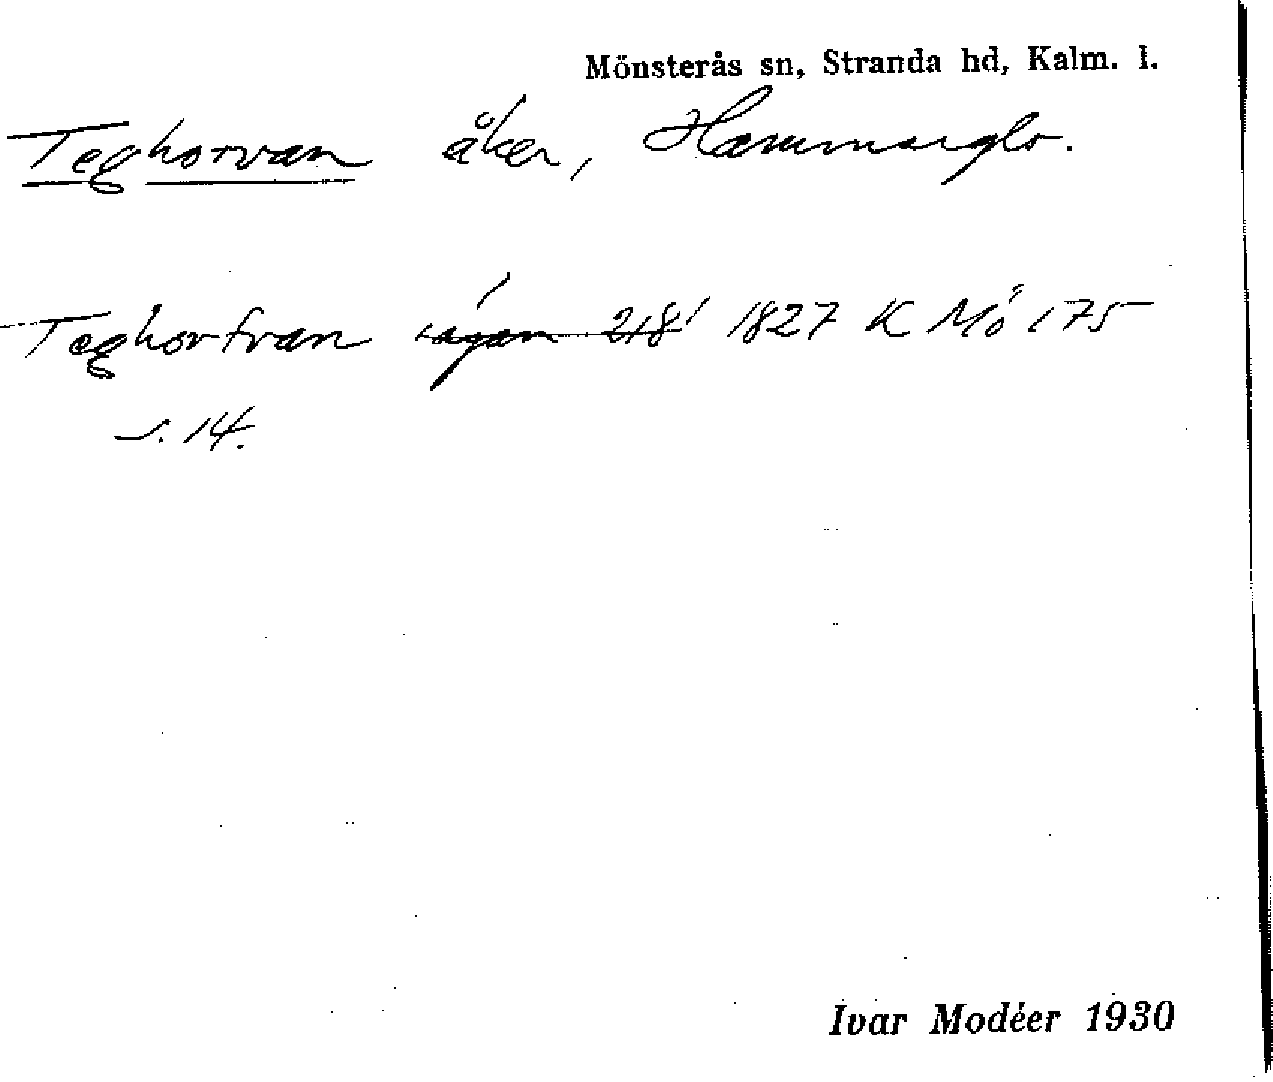 Mönsterås sn, Stranda hd, Kalm. l.
Teghorvan åker, Hammarglo.
Teghorfvan 1827 K Mö 175
s. 14.
Ivar Modéer 1930